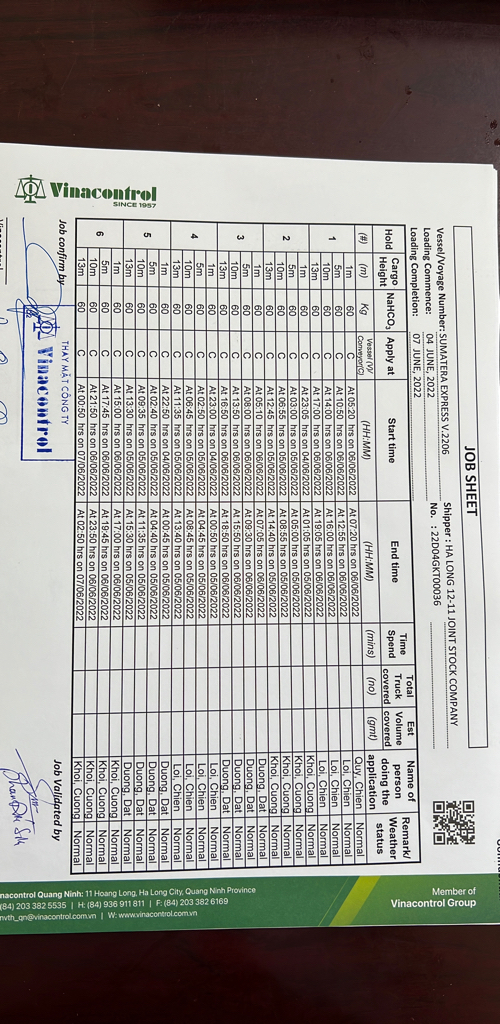 Member of
Vinacontrol Group
Vinacontrol
SINCE 1957
JOB SHEET
Vessel/Voyage Number: SUMATERA EXPRESS V.2206 Shipper : HA LONG 12-11 JOINT STOCK COMPANY
Loading Commence: 04 JUNE, 2022 No. : 22D04GKT00036
Loading Completion: 07 JUNE, 2022
Hold Cargo Height NaHCO3 Apply at Start time End time Time Spend Total Truck covered Est Volume covered Name of person doing the application Remark/ Weather status
(#) (m) Kg Vessel (V)/ Conveyor(C) (HH:MM) (HH:MM) (mins) (no) (gmt)
1 1m 60 C At 05:20 hrs on 06/06/2022 At 07:20 hrs on 06/06/2022 Quy, Chien Normal
5m 60 C At 10:50 hrs on 06/06/2022 At 12:55 hrs on 06/06/2022 Loi, Chien Normal
10m 60 C At 14:00 hrs on 06/06/2022 At 16:00 hrs on 06/06/2022 Loi, Chien Normal
13m 60 C At 17:00 hrs on 06/06/2022 At 19:05 hrs on 06/06/2022 Loi, Chien Normal
2 1m 60 C At 23:05 hrs on 04/06/2022 At 01:05 hrs on 05/06/2022 Khoi, Cuong Normal
5m 60 C At 03:00 hrs on 05/06/2022 At 05:00 hrs on 05/06/2022 Khoi, Cuong Normal
10m 60 C At 06:55 hrs on 05/06/2022 At 08:55 hrs on 05/06/2022 Khoi, Cuong Normal
13m 60 C At 12:45 hrs on 05/06/2022 At 14:40 hrs on 05/06/2022 Khoi, Cuong Normal
3 1m 60 C At 05:10 hrs on 06/06/2022 At 07:05 hrs on 06/06/2022 Duong, Dat Normal
5m 60 C At 08:00 hrs on 06/06/2022 At 09:30 hrs on 06/06/2022 Duong, Dat Normal
10m 60 C At 13:50 hrs on 06/06/2022 At 15:50 hrs on 06/06/2022 Duong, Dat Normal
13m 60 C At 16:50 hrs on 06/06/2022 At 18:50 hrs on 06/06/2022 Duong, Dat Normal
4 1m 60 C At 23:00 hrs on 04/06/2022 At 00:50 hrs on 05/06/2022 Loi, Chien Normal
5m 60 C At 02:50 hrs on 05/06/2022 At 04:45 hrs on 05/06/2022 Loi, Chien Normal
10m 60 C At 06:45 hrs on 05/06/2022 At 08:45 hrs on 05/06/2022 Loi, Chien Normal
13m 60 C At 11:35 hrs on 05/06/2022 At 13:40 hrs on 05/06/2022 Loi, Chien Normal
5 1m 60 C At 22:50 hrs on 04/06/2022 At 00:45 hrs on 05/06/2022 Duong, Dat Normal
5m 60 C At 02:40 hrs on 05/06/2022 At 04:40 hrs on 05/06/2022 Duong, Dat Normal
10m 60 C At 09:35 hrs on 05/06/2022 At 11:35 hrs on 05/06/2022 Duong, Dat Normal
13m 60 C At 13:30 hrs on 05/06/2022 At 15:30 hrs on 05/06/2022 Duong, Dat Normal
6 1m 60 C At 15:00 hrs on 06/06/2022 At 17:00 hrs on 06/06/2022 Khoi, Cuong Normal
5m 60 C At 17:45 hrs on 06/06/2022 At 19:45 hrs on 06/06/2022 Khoi, Cuong Normal
10m 60 C At 21:50 hrs on 06/06/2022 At 23:50 hrs on 06/06/2022 Khoi, Cuong Normal
13m 60 C At 00:50 hrs on 07/06/2022 At 02:50 hrs on 07/06/2022 Khoi, Cuong Normal
Job confirm by Job Validated by
THAY MẶT CÔNG TY
Vinacontrol
nacontrol Quang Ninh: 11 Hoang Long, Ha Long City, Quang Ninh Province
(84) 203 382 5535 | H: (84) 936 911 811 | F: (84) 203 382 6169
nvth_qn@vinacontrol.com.vn | W: www.vinacontrol.com.vn